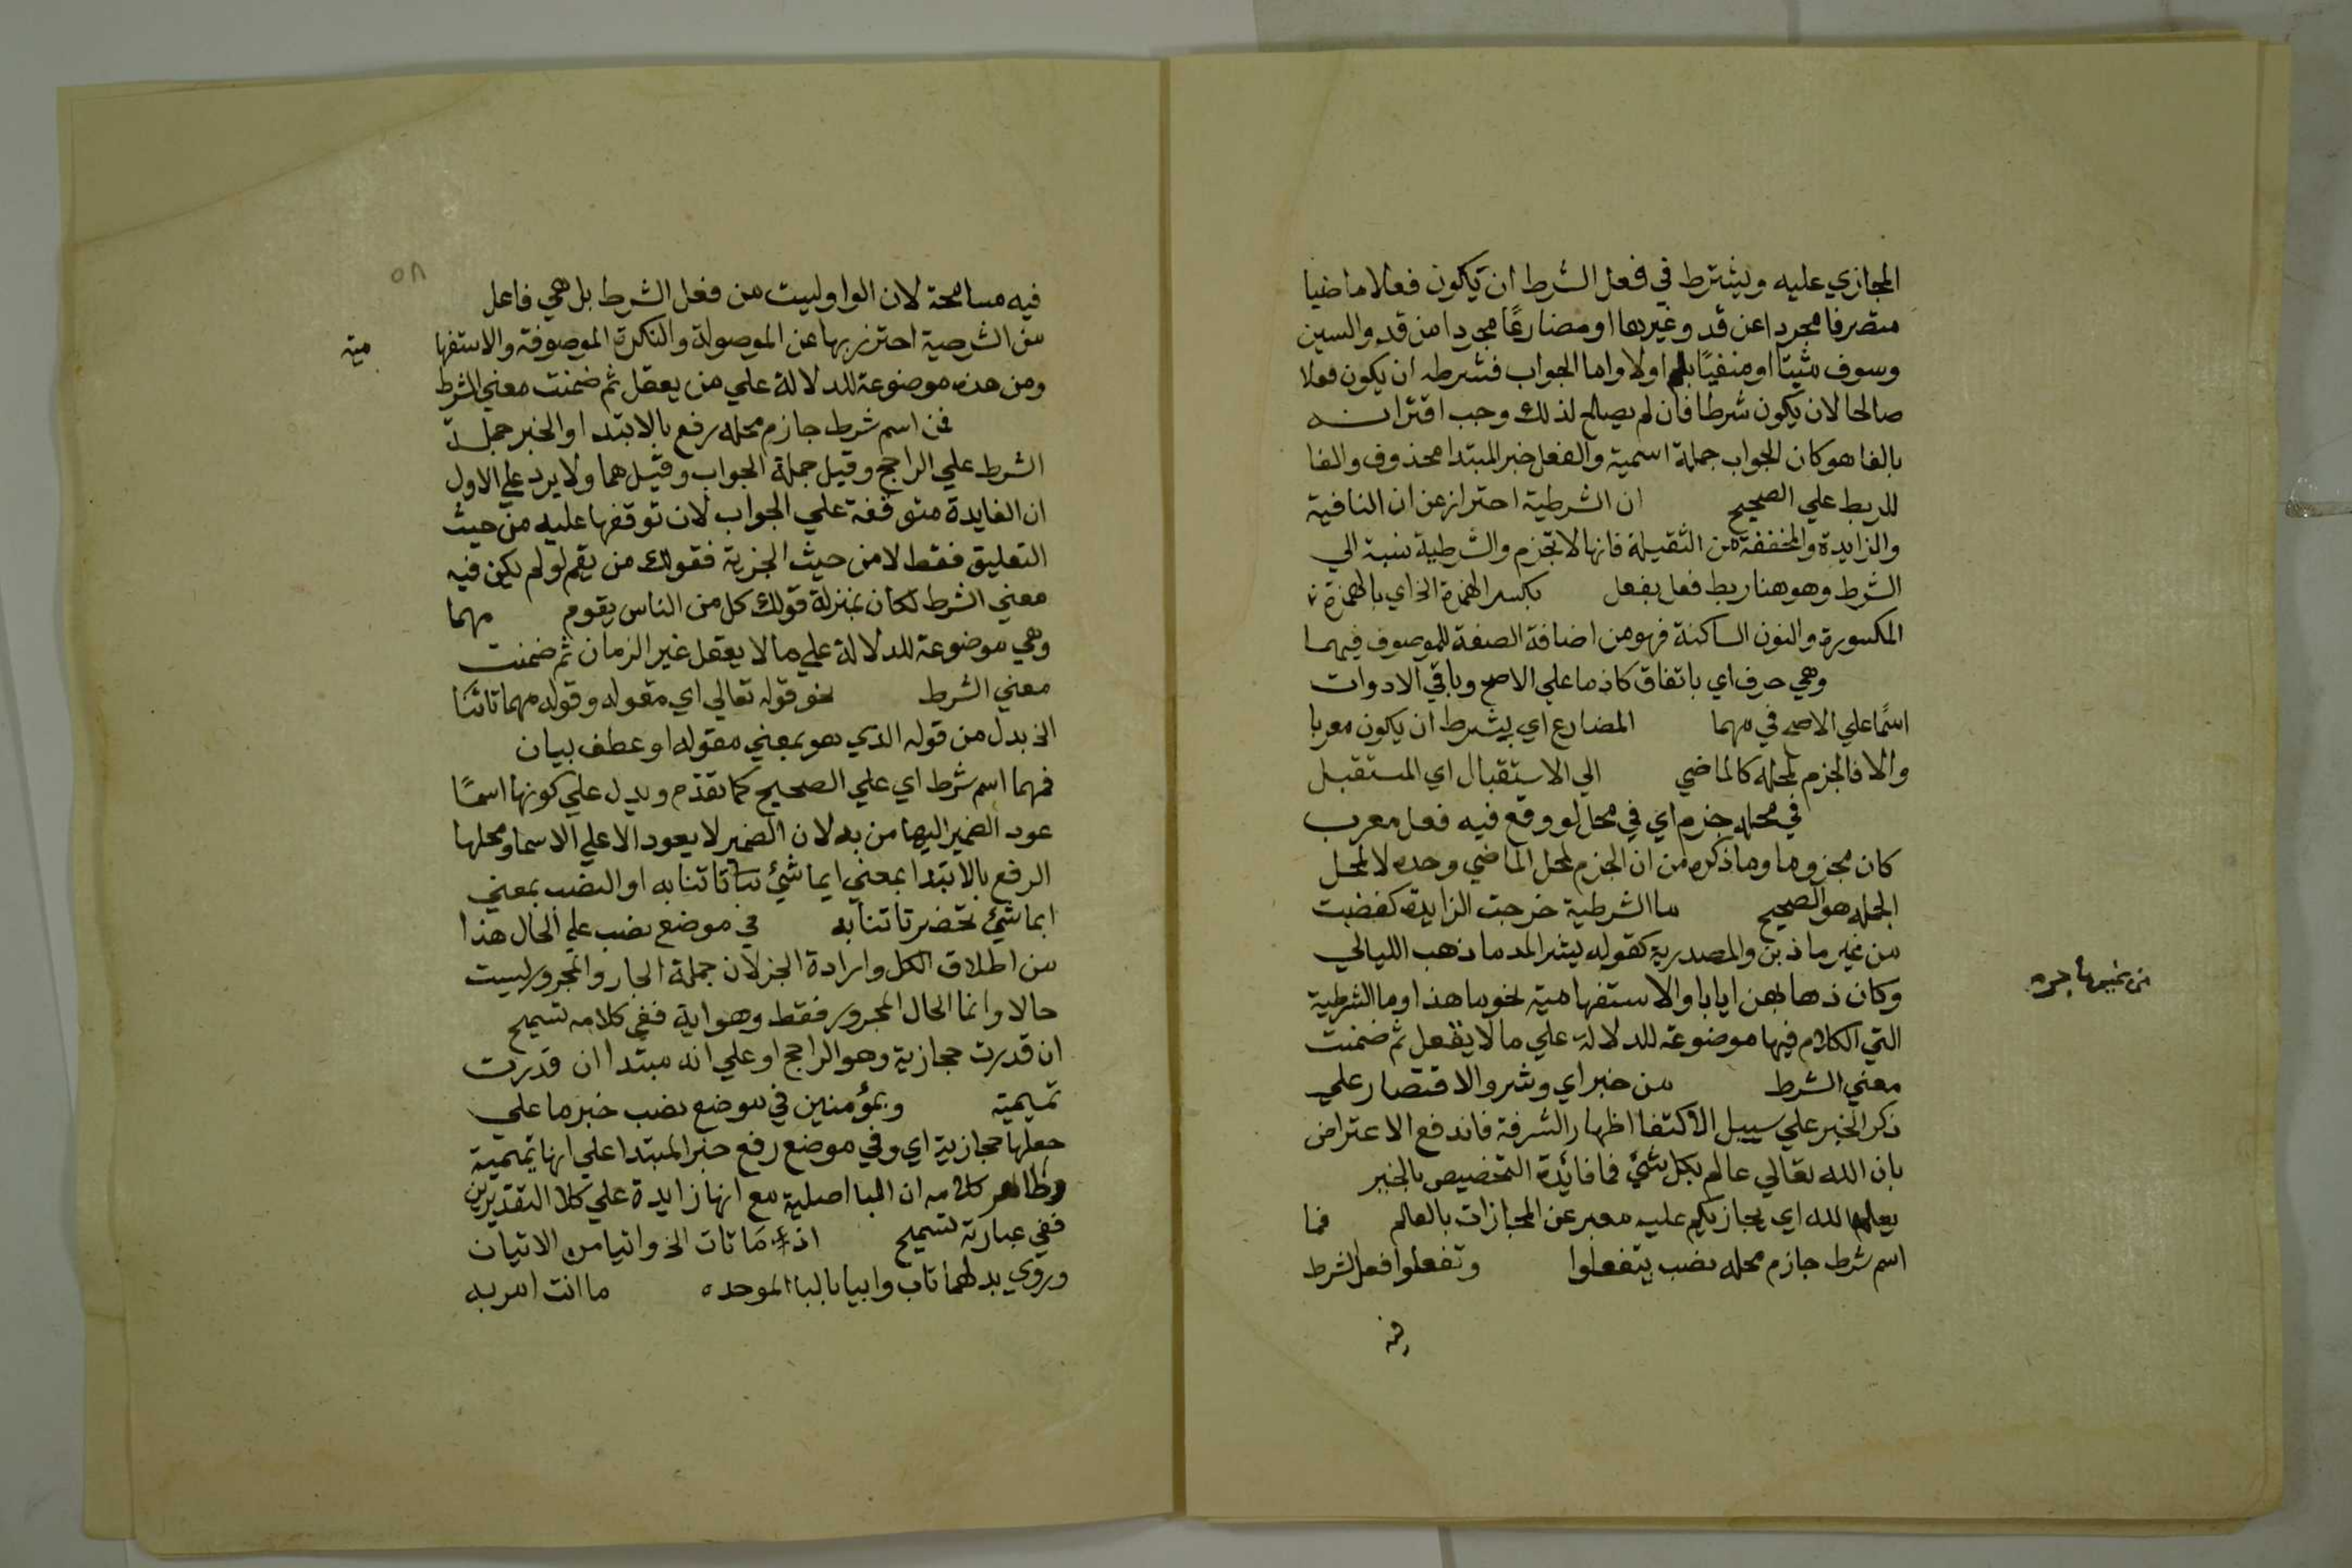 المجازي عليه ويشترط في فعل الشرط ان يكون فعلا ماضيا
متصرفا مجردا عن قد وغيرها او مضارعا مجردا من قد والسين
وسوف مثبتا او منفيًا بلم اولا واما الجواب فشرطه ان يكون فعلا
صالحا لان يكون شرطا فان لم يصلح لذلك وجب اقترانه
بالفا هو كان الجواب جملة اسمية والفعل خبر المبتدا محذوف والفا
للربط علي الصحيح ان الشرطية احتراز عن ان النافية
والزايدة والمخففة من الثقيلة فانها لا تجزم والشرطية نسبة الي
الشرط وهو هنا ربط فعل بفعل بكسر الهمزة الخ اي بالهمزة
المكسورة والنون الساكنة فهو من اضافة الصفة للموصوف فيهما
وهي حرف اي باتفاق كاذما علي الاصح وباقي الادوات
اسمًا علي الاصح في مهما المضارع اي بشرط ان يكون معربا
والا فالجزم لمحله كالماضي الي الاستقبال اي المستقبل
في محله جزم اي في محل لو وقع فيه فعل معرب
كان مجزوما وما ذكره من ان الجزم لمحل الماضي وحده لا لمحل
الجمله هو الصحيح ما الشرطية خرجت الزايدة كغضبت
من غير ما ذنب والمصدرية كقوله يسر المرء ما ذهب الليالي
وكان ذهابهن ايابا والاستفهامية نحو ما هذا وما الشرطية
التي الكلام فيها موضوعة للدلالة علي ما لا يعقل ثم ضمنت
معني الشرط من خير اي وشر والاقتصار علي
ذكر الخير علي سبيل الاكتفا اظهار الشرفه فاندفع الاعتراض
بان الله تعالي عالم بكل شئ فما فائدة التخصيص بالخير
يعلمه الله اي يجازيكم عليه معبر عن المجازات بالعالم فما
اسم شرط جازم محله نصب بتفعلوا وتفعلوا فعل الشرط
فيه
٥٨
فيه مسامحة لان الواو ليست من فعل الشرط بل هي فاعل
من الشرطية احترز بها عن الموصولة والنكرة الموصوفة والاستفها
مية
ومن هذه موضوعة للدلالة علي من يعقل ثم ضمنت معني الشرط
فمن اسم شرط جازم محله رفع بالابتدا والخبر جملة
الشرط علي الراجح وقيل جملة الجواب وقيل هما ولا يرد علي الاول
ان الفايدة متوقفة علي الجواب لان توقفها عليه من حيث
التعليق فقط لا من حيث الخبرية فقولك من يقم لو لم يكن فيه
معني الشرط لكان بمنزلة قولك كل من الناس يقوم مهما
وهي موضوعة للدلالة علي ما لا يعقل غير الزمان ثم ضمنت
معني الشرط نحو قوله تعالي اي مقوله وقوله مهما تاتنا
الخ بدل من قوله الذي هو بمعني مقوله او عطف بيان
فمهما اسم شرط اي علي الصحيح كما تقدم ويدل علي كونها اسمًا
عود الضمير اليها من به لان الضمير لا يعود الا علي الاسما ومحلها
الرفع بالابتدا بمعني ايما شئ تاتنا به او النصب بمعني
ايما شئ تحضر تاتنا به في موضع نصب علي الحال هذا
من اطلاق الكل وارادة الجز لان جملة الجار والمجرور ليست
حالا وانما الحال المجرور فقط وهو اية ففي كلامه تسميح
ان قدرت حجازية وهو الراجح او علي انه مبتدا ان قدرت
تميمية وبمؤمنين في موضع نصب خبر ما علي
جعلها حجازية اي وفي موضع رفع خبر المبتدا علي انها تميمية
وظاهر كلامه ان البا اصلية مع انها زايدة علي كلا التقديرين
ففي عبارته تسميح اذما تات الخ واتيا من الاتيان
وروي بدلهما تاب وابيا بالبا الموحده ما انت امر به